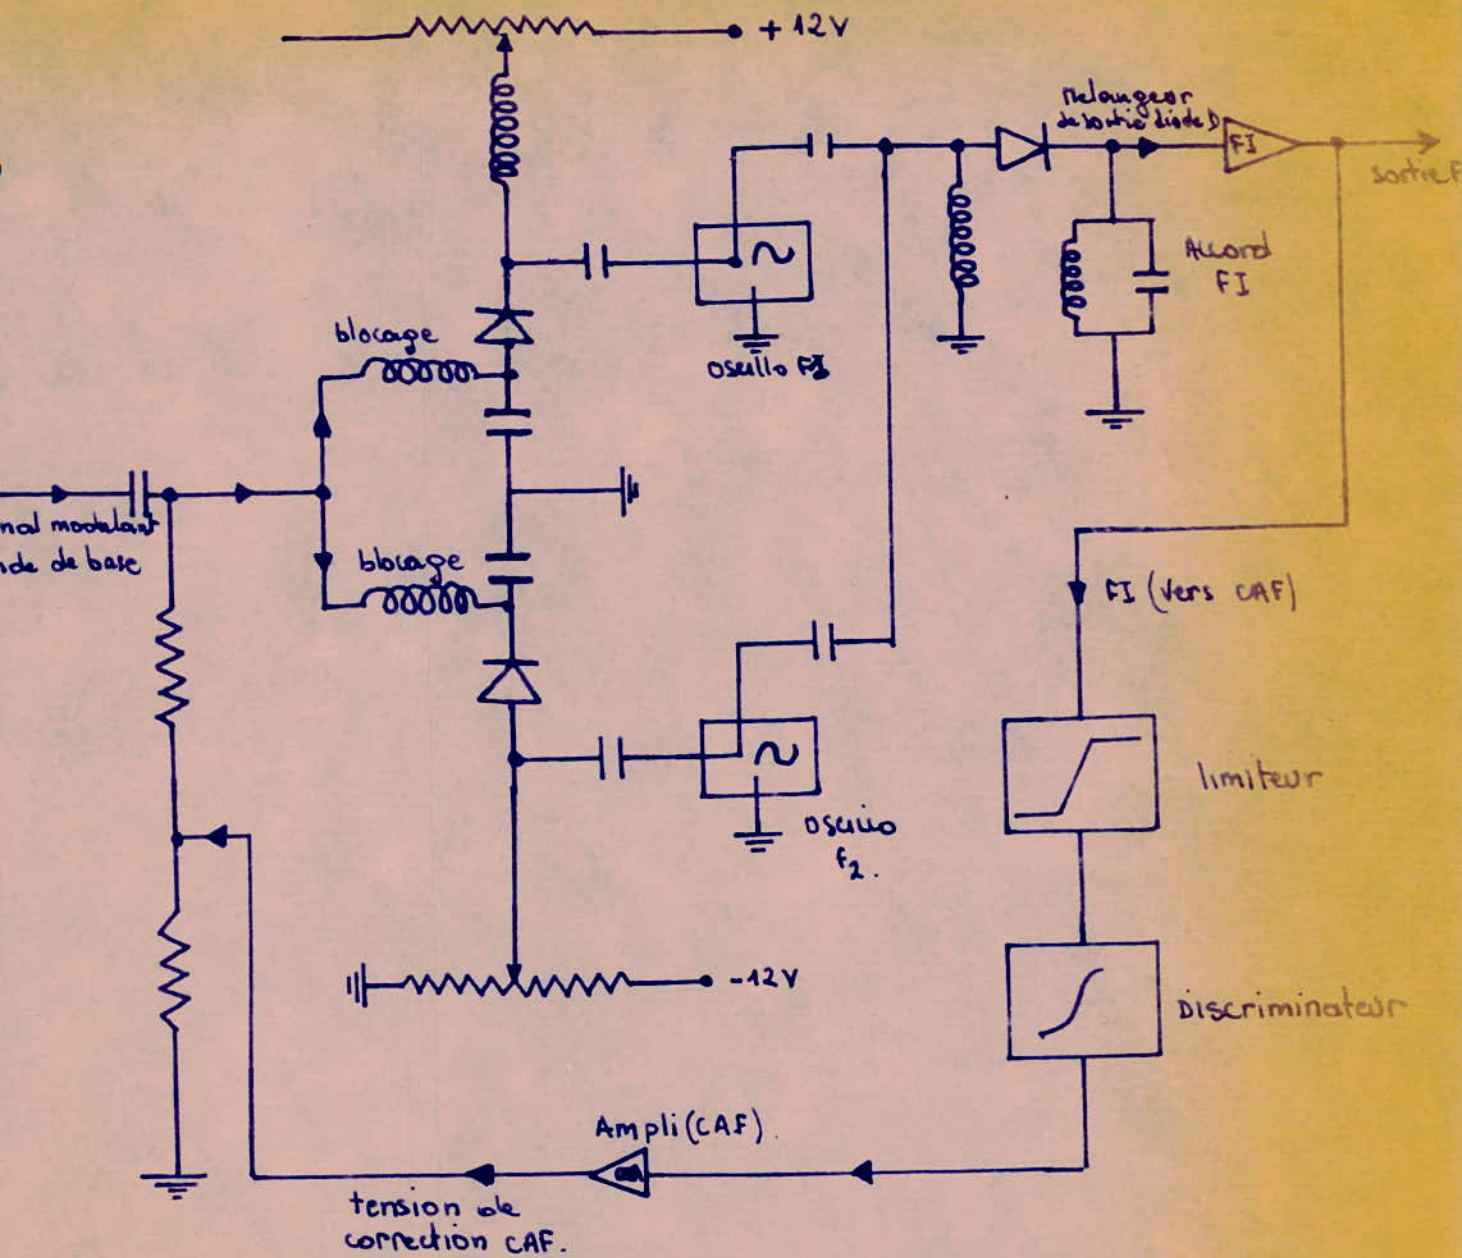 + 12V
Melangeur
de sortie diode D
FI
sortie F
Accord
FI
blocage
oscillo
nal modulant
nde de base
blocage
FI (vers CAF)
limiteur
oscillo
f2.
-12V
Discriminateur
Ampli (CAF).
tension de
correction CAF.